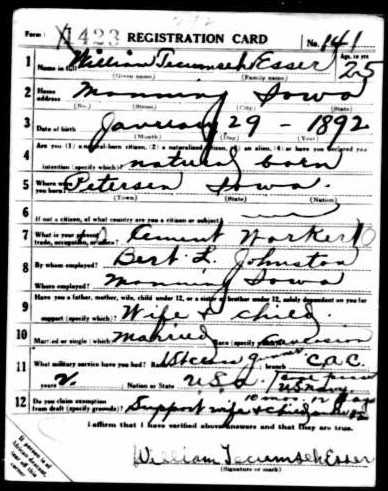 Form 1 1423 REGISTRATION CARD No. 141
1 Name in full William Tecumseh Esser Age, in yrs 25
(Given name) (Family name)
2 Home address Manning Iowa
(No.) (Street) (City) (State)
3 Date of birth January 29 - 1892
(Month) (Day) (Year)
4 Are you (1) a natural-born citizen, (2) a naturalized citizen, (3) an alien, (4) or have you declared your
intention (specify which)? natural born
5 Where were you born? Petersen Iowa.
(Town) (State) (Nation)
6 If not a citizen, of what country are you a citizen or subject?
7 What is your present trade, occupation, or office? Cement Worker
8 By whom employed? Bert L. Johnston
Where employed? Manning Iowa
9 Have you a father, mother, wife, child under 12, or a sister or brother under 12, solely dependent on you for
support (specify which)? Wife & child.
10 Married or single (which)? Married Race (specify which)? Caucasian
11 What military service have you had? Rank 1st class gunner branch C.A.C.
years 2 Nation or State U.S.A.
12 Do you claim exemption from draft (specify grounds)? Support wife & child
I affirm that I have verified above answers and that they are true.
William Tecumseh Esser
(Signature or mark)
If person is of
African descent,
tear off this
corner